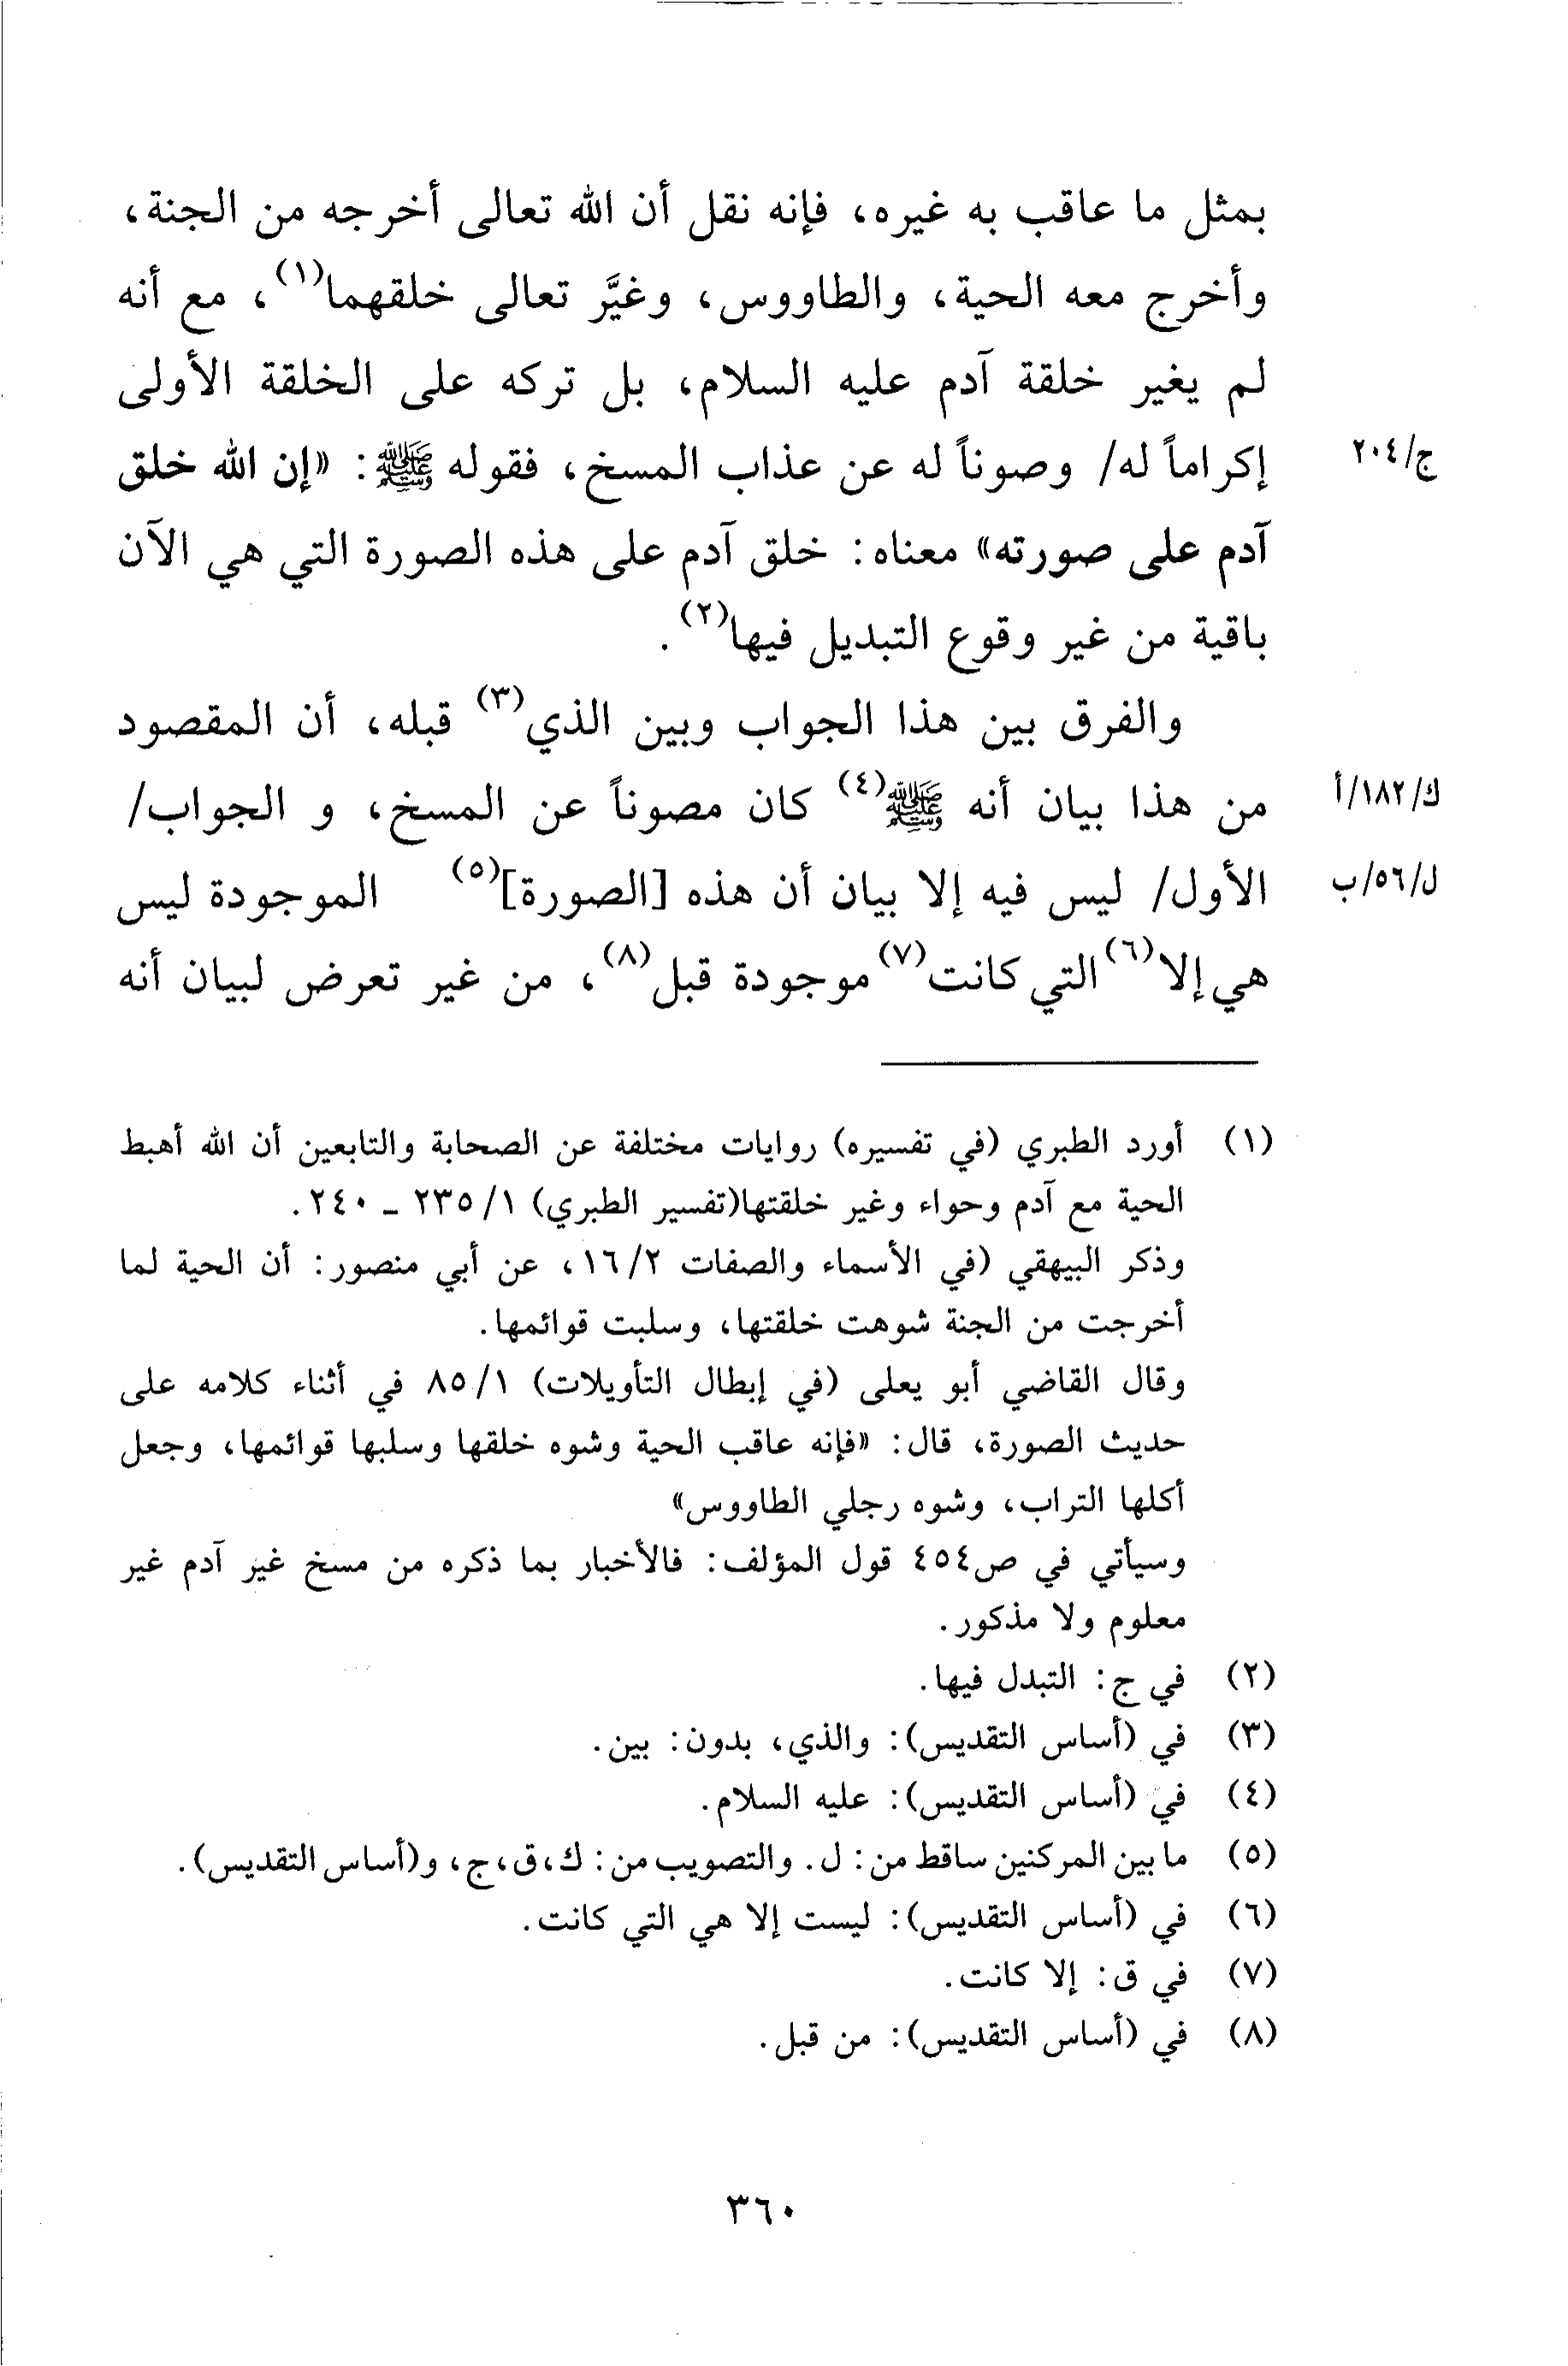 بمثل ما عاقب به غيره، فإنه نقل أن الله تعالى أخرجه من الجنة،
وأخرج معه الحية، والطاووس، وغيَّر تعالى خلقهما(١)، مع أنه
لم يغير خلقة آدم عليه السلام، بل تركه على الخلقة الأولى
إكراماً له/ وصوناً له عن عذاب المسخ، فقوله ﷺ: «إن الله خلق
ج/٢٠٤
آدم على صورته» معناه: خلق آدم على هذه الصورة التي هي الآن
باقية من غير وقوع التبديل فيها(٢).
والفرق بين هذا الجواب وبين الذي(٣) قبله، أن المقصود
من هذا بيان أنه ﷺ(٤) كان مصوناً عن المسخ، و الجواب/
ك/١٨٢/أ
الأول/ ليس فيه إلا بيان أن هذه [الصورة](٥) الموجودة ليس
ل/٥٦/ب
هي إلا(٦) التي كانت(٧) موجودة قبل(٨)، من غير تعرض لبيان أنه
(١) أورد الطبري (في تفسيره) روايات مختلفة عن الصحابة والتابعين أن الله أهبط
الحية مع آدم وحواء وغير خلقتها(تفسير الطبري) ١/ ٢٣٥ ـ ٢٤٠.
وذكر البيهقي (في الأسماء والصفات ١٦/٢، عن أبي منصور: أن الحية لما
أخرجت من الجنة شوهت خلقتها، وسلبت قوائمها.
وقال القاضي أبو يعلى (في إبطال التأويلات) ١/ ٨٥ في أثناء كلامه على
حديث الصورة، قال: «فإنه عاقب الحية وشوه خلقها وسلبها قوائمها، وجعل
أكلها التراب، وشوه رجلي الطاووس»
وسيأتي في ص٤٥٤ قول المؤلف: فالأخبار بما ذكره من مسخ غير آدم غير
معلوم ولا مذكور.
(٢) في ج: التبدل فيها.
(٣) في (أساس التقديس): والذي، بدون: بين.
(٤) في (أساس التقديس): عليه السلام.
(٥) ما بين المركنين ساقط من: ل. والتصويب من: ك،ق،ج، و(أساس التقديس).
(٦) في (أساس التقديس): ليست إلا هي التي كانت.
(٧) في ق: إلا كانت.
(٨) في (أساس التقديس): من قبل.
٣٦٠